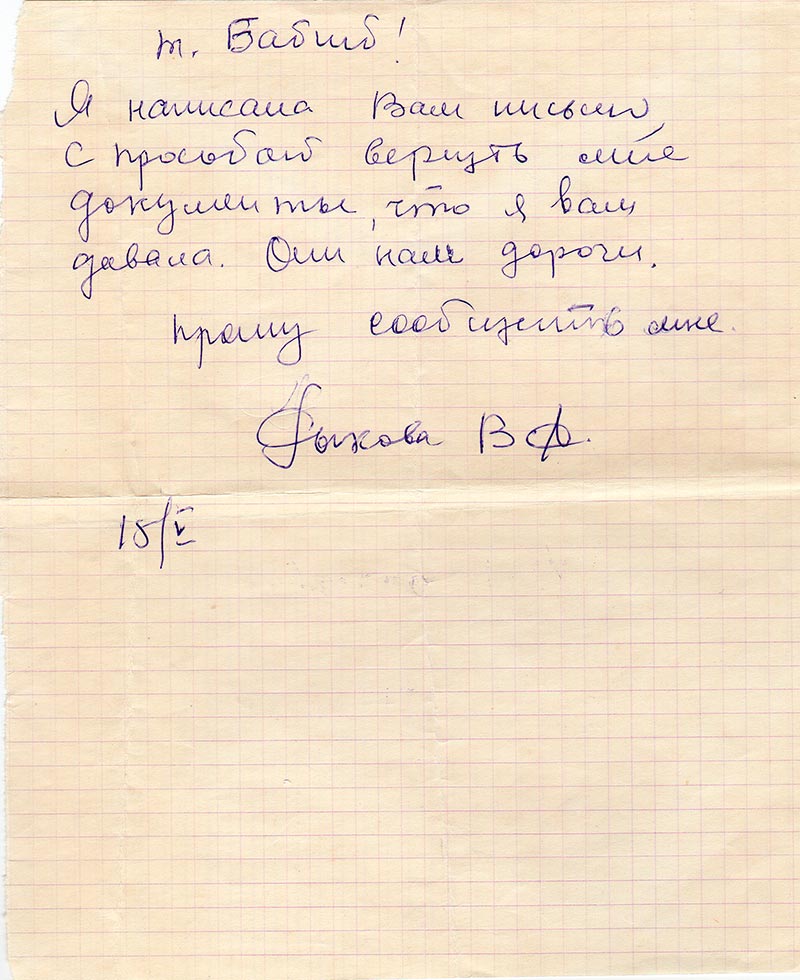 т. Бабий!
Я написала Вам письмо,
с прозьбой вернуть мне
документы, что я вам
давала. Они нам дороги.
прошу сообщить мне.
В Ф.
15/V